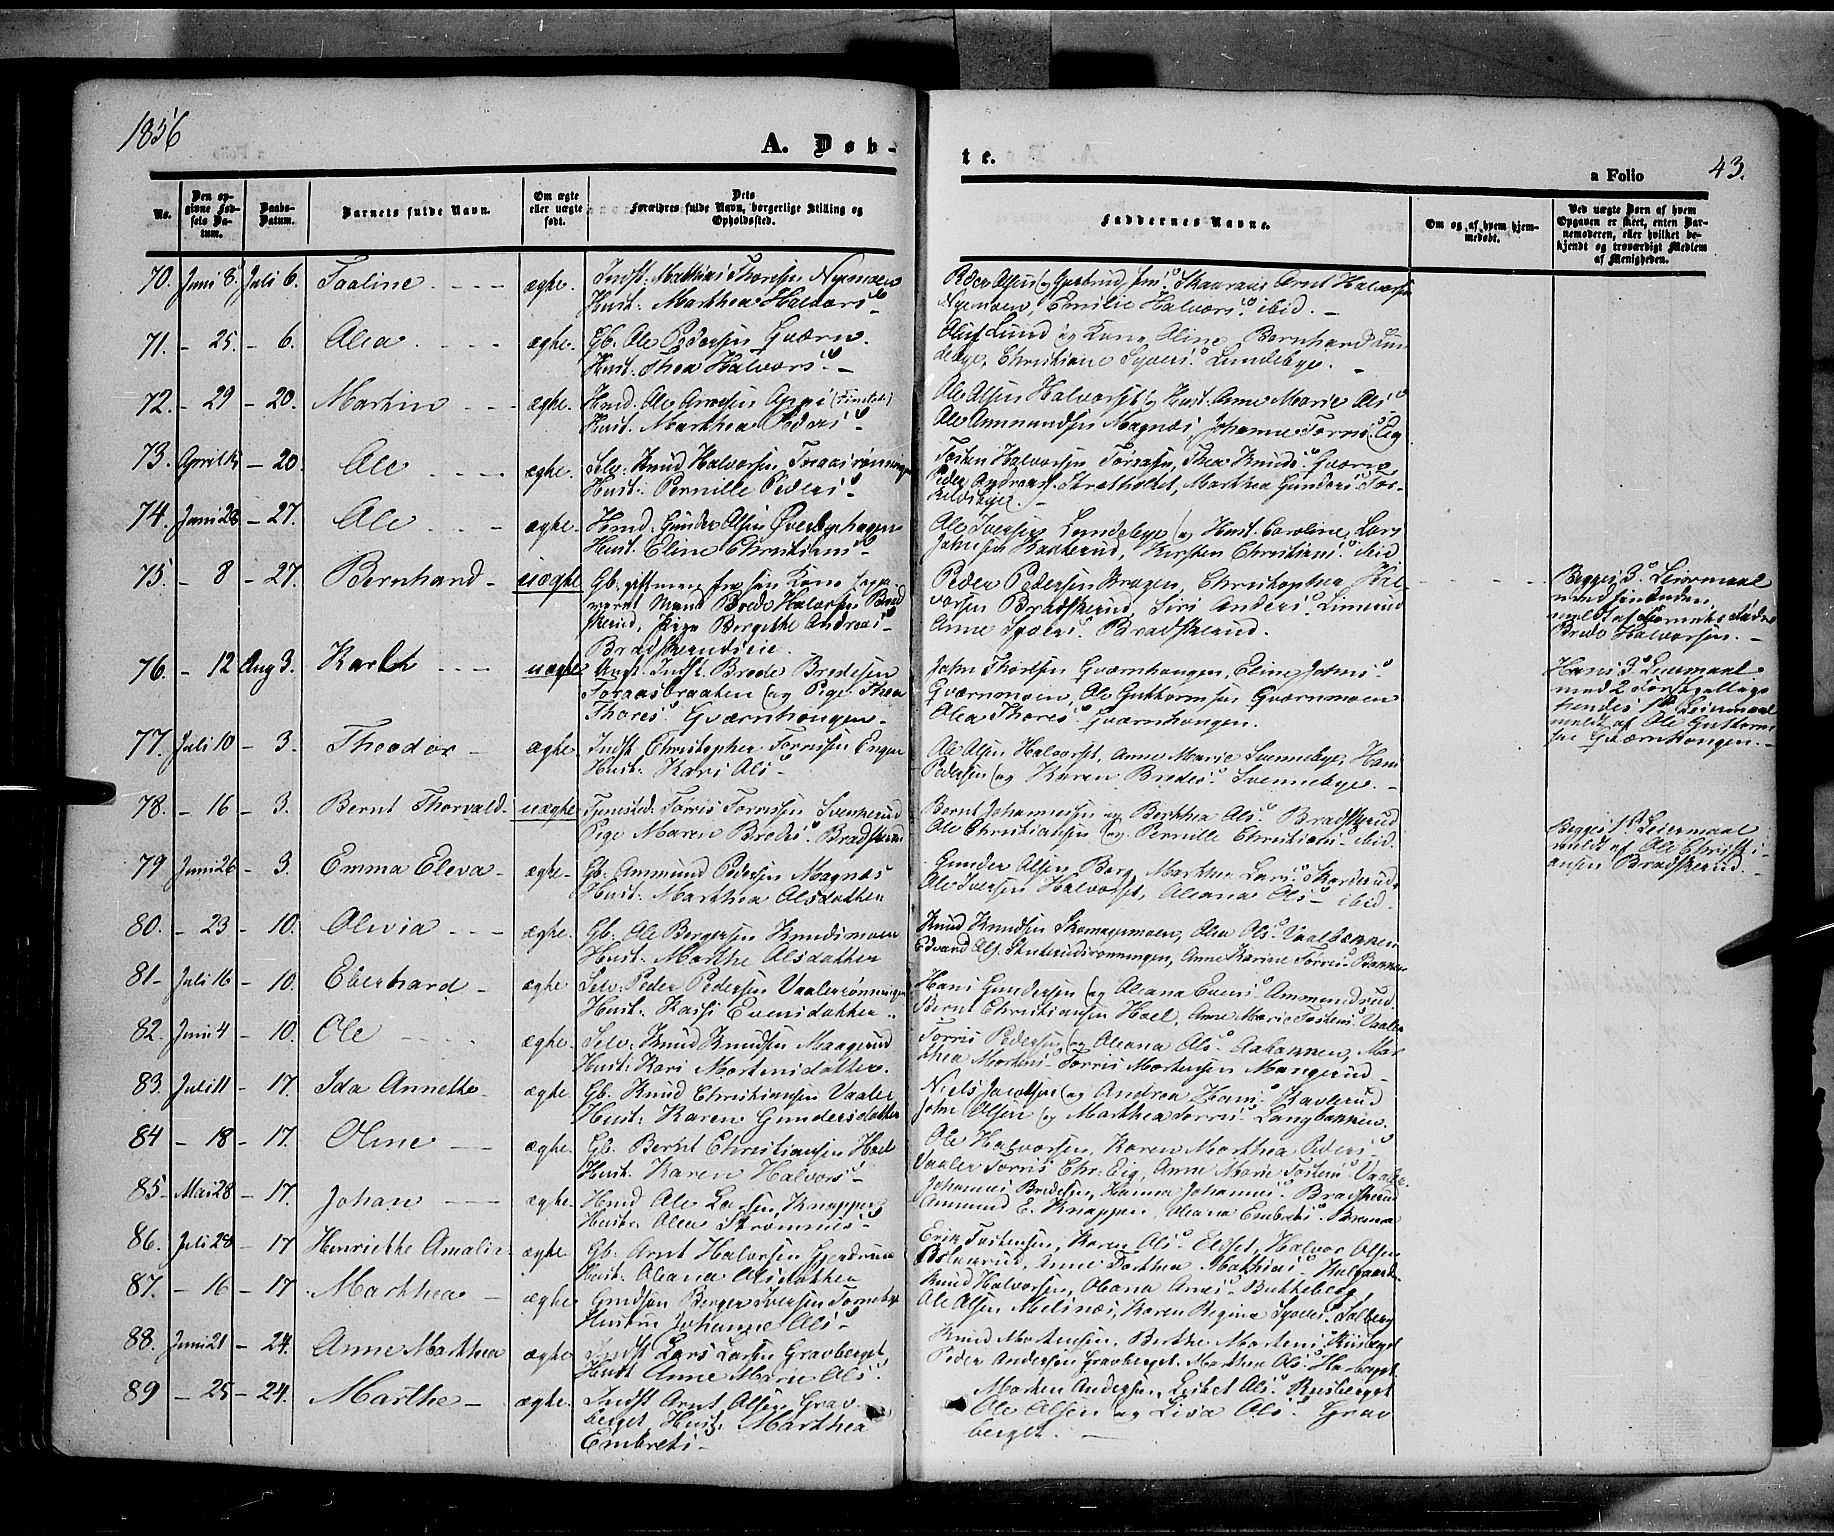 1856
A. Døb-
te.
a Folio
43.
No.
Den op-
givne Fød-
sels Da-
tum.
Daabs-
Datum.
Barnets fulde Navn.
Om ægte
eller uægte
født.
Dets
Forældres fulde Navn, borgerlige Stilling og
Opholdssted.
Faddernes Navne.
Om og af hvem hjem-
medøbt.
Ved uægte Børn af hvem
Opgaven er skeet, enten Bar-
nemoderen, eller hvilket be-
kjendt og troværdigt Medlem
af Menigheden.
70. Juni 8. Juli 6. Taaline ægte. Indst. Mathias Thoresen Nyemoen
Hust. Marthea Halvorsd.
Peder Olsen og Gjertrud Skaaraas Arnt Halvorsen
Nyemoen, Emilie Halvorsd. ibid.
71. - 25. - 6. Alea ægte. Gb. Ole Pedersen Qværn.
Hust. Thea Halvorsd.
Oluf Lund og Kone Oline, Bernhard Lun
debye, Christiane Syversd. Lundebye.
72. - 29 - 20. Martin ægte. Hmd. Ole Arnesen
Hust. Marthea Pedersd.
Ole Olsen Halvorset og Hust. Anne Marie Olsd.
Ole Ammundsen Magnæs, Johanne Torrisd. Eig
73. April - 20. Ole ægte. Selv. Knud Halvorsen Toraasrønningen
Hust. Pernille Pedersd.
Tosten Halvorsen Toraasen, Thea Knudsd. Qværn,
Peder Andreas. Marthea Gundersd. Tor-
kelsbye.
74. Juni 28 - 27. Ole ægte. Hmd. Gunder Olsen Øverbyhagen
Hust. Eline Christiansd.
Ole Iversen Lundebye og Hust. Caroline, Lars
Johnsen Kasterud, Kirsten Christiansd. ibid
75. - 8 - 27. Bernhard uægte Gb. gift men fra sin Kone
Mand Brede Halvorsen Brad
skerud, Pige Bergithe Andreasd.
Bradskerudseie.
Peder Pedersen Kragen, Christophea Hal
vorsen Bradskerud, Siri Andersd. Limerud
Anne Syversd. Bradskerud.
Begges 3d. Leiermaal
med hinanden,
meldt af Barnets Fader
Brede Halvorsen.
76. - 12 Aug 3. Karl uægte Ungk. Indst. Brede Bredesen
Toraasbraaten og Pige Thea
Thoresd. Qværnhougen.
John Thoresen Qværnhougen, Eline Johnsd.
Qværnmoen, Ole Guttormsen Qværnmoen
Olea Thoresd. Qværnhougen.
Hans 3d. Leiermaal
med 2 forskjellige
hendes 1ste Leiermaal
meldt af Ole Guttorm
sen Qværnhougen.
77. Juli 10 - 3. Theodor ægte. Indst Christopher Torrissen Enger
Hust. Kari Olsd.
Ole Olsen Halvorset, Anne Marie Svennebye, Hans
Pedersen og Karen Bredesd. Svennebye.
78. - 16 - 3. Bernt Thorvald uægte Tjenested. Torris Torrissen Svenkerud
Pige Maren Bredesd. Bradskerud
Bernt Johannesen og Berthea Olsd. Bradskerud
Ole Christiansen og Pernille Christiansd. ibid.
Begges 1ste Leiermaal
meldt af Ole Christi-
ansen Bradskerud.
79 Juni 26 - 3. Emma Eleva ægte Gb. Ammund Pedersen Magnæs
Hust. Marthea Olsdatter
Gunder Olsen Berg, Marthea Larsd. Skarderud,
Ole Iversen Halvorset, Oleana Olsd. ibid.
80. - 23 - 10. Olevia ægte. Gb. Ole Bergersen Knudsmoen
Hust. Marthe Olsdatter
Knud Knudsen Skomagermoen, Olea Olsd. Vaalbakken
Edvard Ols. Skuterudsrønningen, Anne Karine Torrisd. Bakken
81 Juli 16 - 10. Eberhard ægte Selv. Peder Pedersen Vaalerrønningen
Hust. Kassi Evensdatter.
Hans Gundersen og Oleana Evensd. Ammundrud
Bernt Christiansen Hoel, Anne Marie Tostensd. Vaaler
82. Juni 4 - 10. Ole ægte. Selv. Knud Knudsen Mangerud
Hust. Kari Mortensdatter.
Torris Pedersen og Oleana Olsd. Aabakken, Mar
thea Mortensd. Torris Mortensen Mangerud
83. Juli 11 - 17. Ida Annette ægte. Gb. Knud Christiansen Vaaler
Hust. Karen Gundersdatter
Niels Jacobsen og Andrea Hansd. Kaalerud
John Olsen og Marthea Torrisd. Langbakken.
84 - 18 - 17. Oline ægte. Gb. Bernt Christiansen Hoel
Hust. Karen Halvorsd.
Ole Halvorsen, Karen Marthea Pedersd.
Vaaler Torris Chr. Eig, Anne Marie Tostensd. Vaaler
85 Mai 28 - 17. Johan ægte. Hmd Ole Larsen Knappen
Hust. Olea Strømnesd.
Johannes Bredesen, Hanna Johannesd. Bradskerud
Ammund E. Knappen, Oleana Embretsd. Brenna
86. Juli 28 - 17 Henriette Amalie ægte Gb. Arnt Halvorsen Gjerdrum
Hust. Oleana Olsdatter
Erik Tostensen, Karen Olsd. Elset, Halvor Olsen
Anne Dorthea Mathisd. Kalgaard
87. - 16 - 17 Marthea ægte Gmdsøn Berger Iversen Torneby
Hustru Johanne Olsd.
Knud Halvorsen, Oleana Arnesd. Butteberg,
Ole Olsen Melsnæs, Karen Regine Syversd. Solberg
88. Juni 21 - 24. Anne Marthea ægte Indst Lars Larsen Gravberget
Hust Anne Marie Olsd.
Knud Mortensen, Berthe Mortensd. Risberget
Peder Andersen Gravberget, Marthea Olsd.
89 - 25 - 24. Marthe ægte. Indst Arnt Olsen Grav
berget, Hust. Marthea
Embretsd.
Morten Andersen, Lisbet Olsd. Risberget
Ole Olsen og Lisa Olsd. Grav
berget.